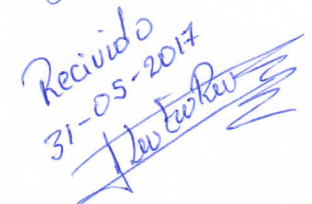 Recivido
31-05-2017